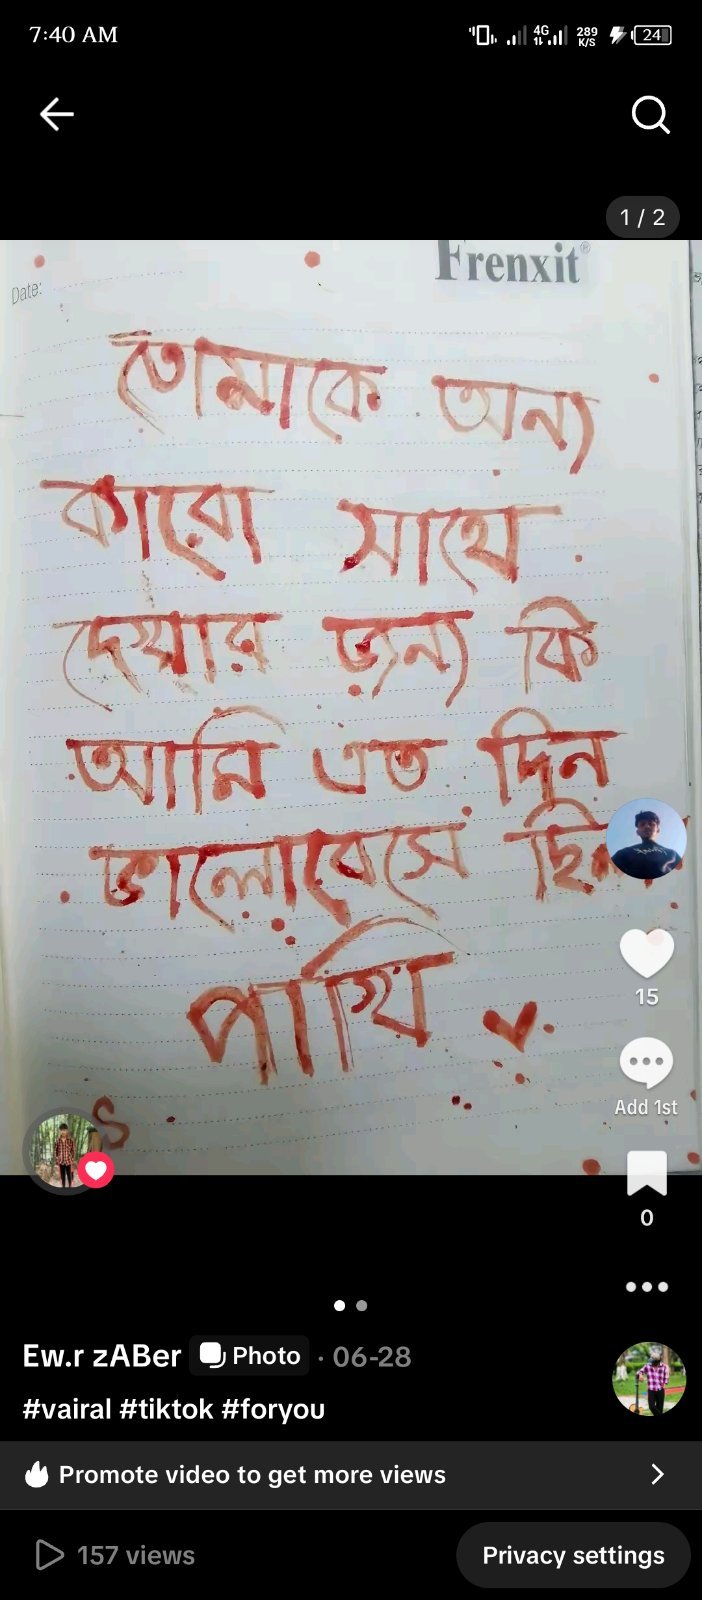 7:40 AM
4G
289
K/S
24
1 / 2
Frenxit®
Date:
তোমাকে অন্য
কারো সাথে
দেখার জন্য কি
আমি এত দিন
ভালোবেসে ছিলাম
পাখি
S
15
Add 1st
0
Ew.r zABer Photo · 06-28
#vairal #tiktok #foryou
Promote video to get more views
157 views
Privacy settings